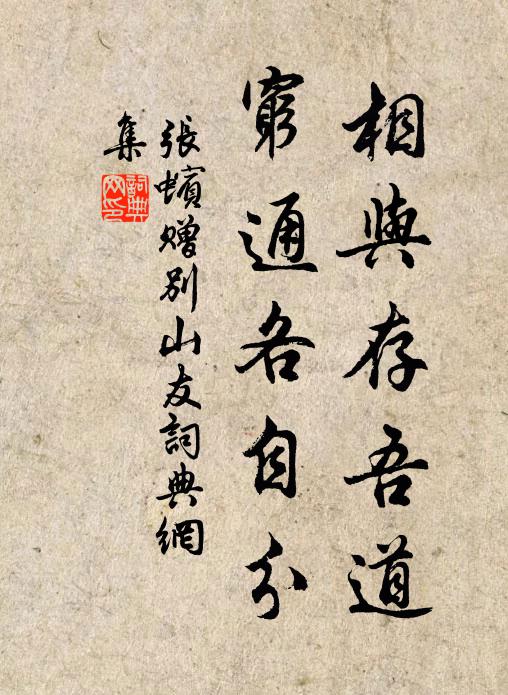 相與存吾道
窮通各自分
張蠙贈別山友詞典網
集
詞典
网印